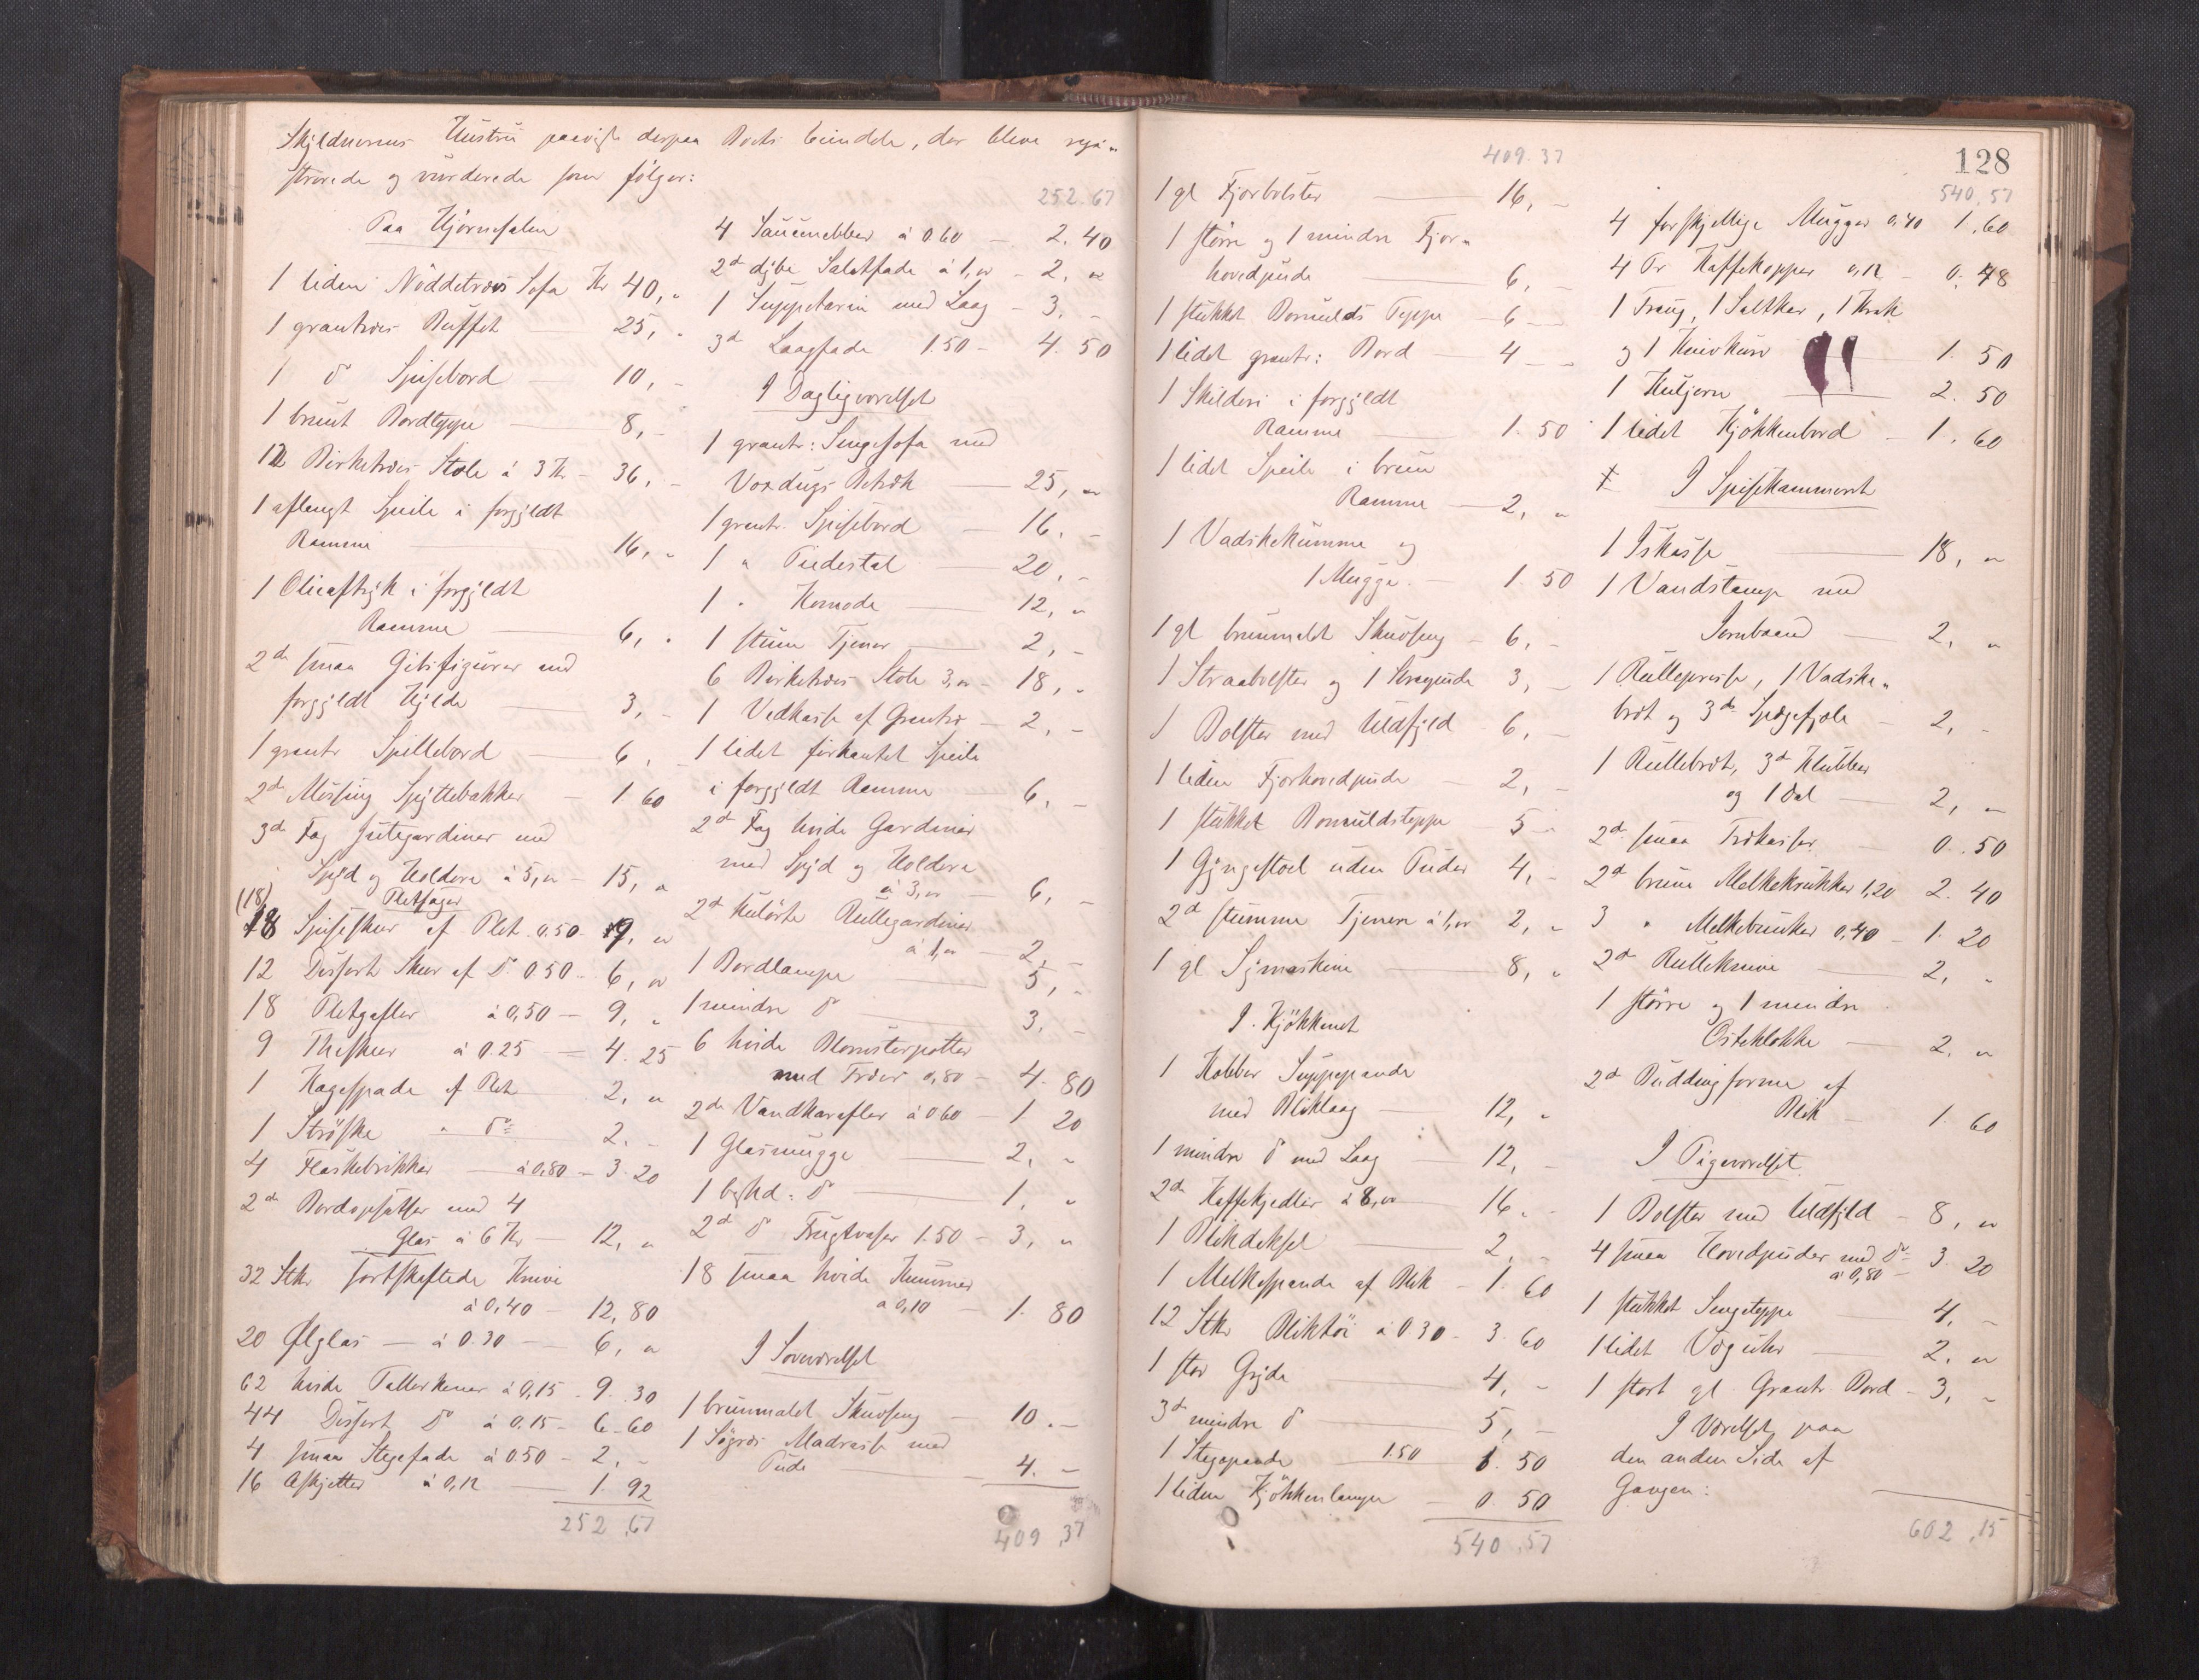 Skyldnerens Hustru paaviste derpaa Boets Eiendele, der bleve regi„
strerede og vurderede som følger:
Paa Hjørnesalen
1 liden Nøddetræes Sofa Kr 40, „
1 grantræes Buffet — 25, „
1 do Spisebord — 10, –
1 brunt Bordteppe — 8, –
12 Birketræes Stole à 3 Kr – 36, –
1 aflangt Speile i forgyldt
Ramme — 16, „
1 Olieaftryk i forgyldt
Ramme — 6, „
2de smaa Gibsfigurer med
forgyldt Hylde — 3, –
1 grantr Spillebord — 6, –
2de Messing Spyttebakker — 1 60
3de Fag Jutegardiner med
Spyd og Holdere à 5, „ – 15, „
(18) Pletsager
18 Spiseskeer af Plet 0.50 – 9, „
12 Dessert Skeer af Do 0 50 – 6, „
18 Pletgafler à 0,50 – 9, „
9 Theskeer à 0.25 — 4. 25
1 Kagespade af Plet 2, „
1 Strøske „ Do 2. –
4 Flaskebrikker — à 0,80 – 3. 20
2de Bordopsatser med 4
Glas à 6 Kr — 12, „
32 Stkr sortskaftede Knive
à 0,40 – 12, 80
20 Ølglas — à 0.30 — 6, „
62 hvide Tallerkener à 0,15 – 9. 30
44 Dessert Do à 0.15 – 6 – 60
4 smaa Stegefade à 0.50 – 2, –
16 Asjetter à 0,12 — 1. 92
252,67
252.67
4 Saucenebber à 0 60 – 2. 40
2de dybe Salatfade à 1, „ – 2, „
1 Suppeterin med Laag – 3, –
3de Laagfade 1.50 – 4. 50
I Dagligværelset
1 grantr: Sengesofa med
Voxdugs Betræk — 25, „
1 grantr. Spisebord – 16, –
1 „ Piedestal — 20, –
1 „ Komode — 12, „
1 stum Tjener — 2, –
6 Birketræes Stole 3, „ – 18, „
1 Vedkasse af Grantræ – 2, –
1 lidet firkantet Speile
i forgyldt Ramme 6, –
2de Fag hvide Gardiner
med Spyd og Holdere
à 3, „ – 6, –
2de kulørte Rullegardiner
à 1, „ – 2, –
1 Bordlampe — 5, „
1 mindre do — 3, –
6 hvide Blomsterpotter
med Træer 0,80 – 4. 80
2de Vandkarafler à 0 60 – 1 20
1 Glasmugge — 2, „
1 beskd: do — 1, „
2de do Frugtvaser 1.50 – 3, „
18 smaa hvide Kummer
à 0,10 – 1. 80
I Soveværelset
1 brunmalet Skuvseng — 10. –
1 Søgræs Madrasse med
Pude — 4. –
409,37
409.37
128
1 gl Fjorbolster — 16, –
1 større og 1 mindre Fjor„
hovedpude — 6, –
1 stukket Bomulds Teppe – 6 —
1 lidet grantr: Bord — 4 —
1 Skilderi i forgyldt
Ramme — 1. 50
1 lidet Speile i brun
Ramme — 2, „
1 Vadskekumme og
1 Mugge — 1. 50
1 gl brunmalt Skuvseng – 6, –
1 Straabolster og 1 Straapude 3, –
1 Bolster med Uldfyld – 6, –
1 liden Fjorhovedpude — 2, –
1 stukket Bomuldsteppe – 5 –
1 Gyngestoel uden Puder 4, –
2de stumme Tjenere à 1, „ 2, „
1 gl Symaskine — 8, „
I Kjøkkenet
1 Kobber Suppepande
med Bliklaag — 12, „
1 mindre do med Laag — 12, –
2de Kaffekjedler à 8, „ 16. –
1 Blikdeksel — 2, –
1 Melkespande af Blik – 1. 60
12 Stkr Bliktøi à 0 30 – 3. 60
1 stor Gryde — 4, –
3de mindre do — 5, –
1 Stegepande — 1.50 1. 50
1 liden Kjøkkenlampe – 0. 50
540.57
540,57
4 forskjellige Mugger 0,40 1. 60
4 Pr Kaffekopper 0,12 – 0. 48
1 Traug, 1 Saltkar, 1 Krak
og 1 Knivkurv 1. 50
1 Kuljern — 2. 50
1 lidet Kjøkkenbord – 1. 60
I Spisekammeret
1 Iskasse — 18, „
1 Vandstamp med
Jernbaand — 2, „
1 Rullepresse, 1 Vadske„
bræt og 3de Spegefjøle – 2, –
1 Rullebræt, 3de Klubber
og 1 Øxl — 2, „
2de smaa Trækasser — 0. 50
2de brune Melkekrukker 1,20 2. 40
3 „ Melkebunker 0,40 – 1. 20
2de Rulleknive — 2, „
1 større og 1 mindre
Osteklokke — 2, „
2de Buddingforme af
Blik — 1. 60
I Pigeværelset
1 Bolster med Uldfyld – 8, „
4 smaa Hovedpuder med Do 3. 20
à 0,80 –
1 stukket Sengeteppe — 4, –
1 lidet Væguhr — 2, „
1 stort gl. Grantr Bord – 3, –
I Værelset paa
den anden Side af
Gangen:
602,15